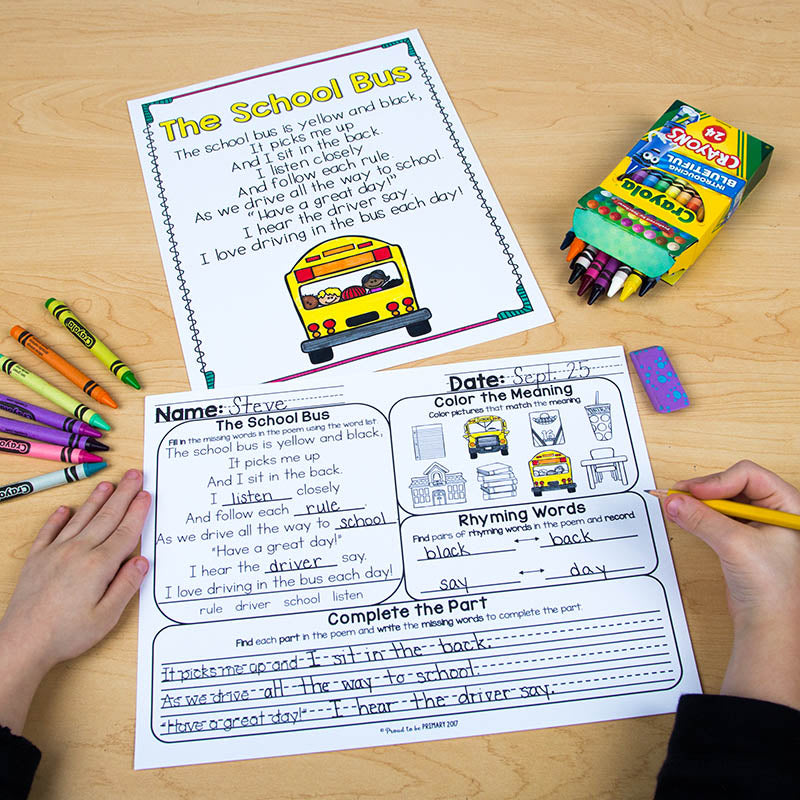 The School Bus
The school bus is yellow and black,
It picks me up
And I sit in the back.
I listen closely
And follow each rule.
As we drive all the way to school.
"Have a great day!"
I hear the driver say.
I love driving in the bus each day!
24
CRAYONS
INTRODUCING
BLUETIFUL
Crayola
Crayola
Crayola
Crayola
Crayola
Crayola
Name: Steve
Date: Sept. 25
The School Bus
Fill in the missing words in the poem using the word list.
The school bus is yellow and black,
It picks me up
And I sit in the back.
I listen closely
And follow each rule.
As we drive all the way to school
"Have a great day!"
I hear the driver say.
I love driving in the bus each day!
rule driver school listen
Color the Meaning
Color pictures that match the meaning.
Rhyming Words
Find pairs of rhyming words in the poem and record
black back
say day
Complete the Part
Find each part in the poem and write the missing words to complete the part.
It picks me up and I sit in the back.
As we drive all the way to school.
"Have a great day!" I hear the driver say.
© Proud to be PRIMARY 2017